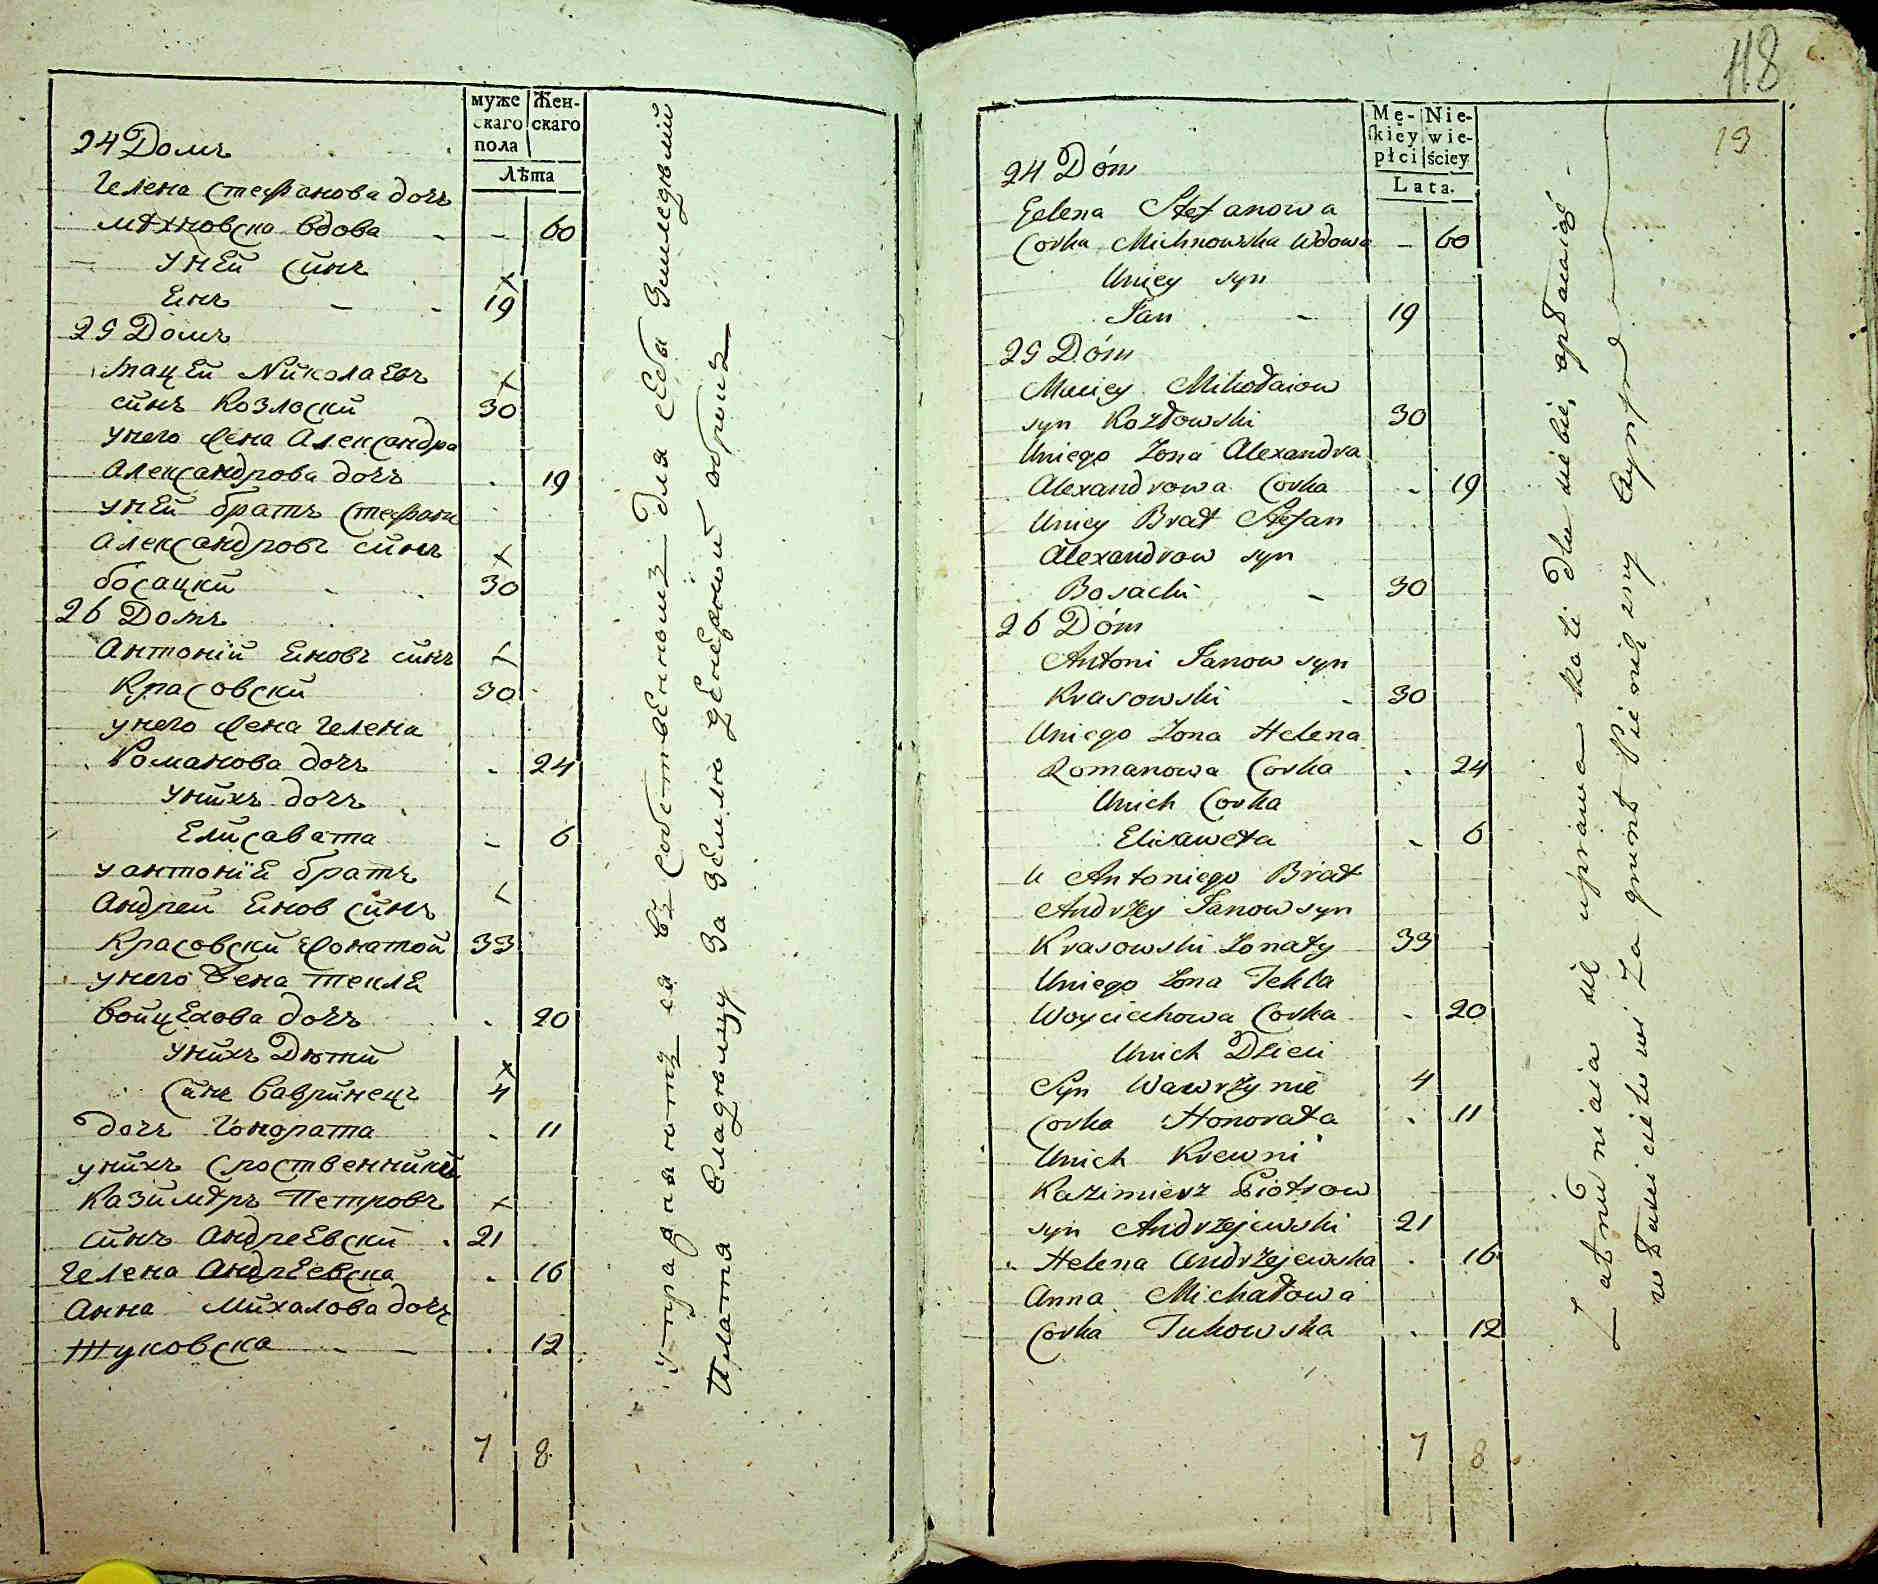 муже
скаго
пола
Жен-
скаго
Лѣта
24 Домъ
Гелена Стефанова дочъ
Мѣхновска вдова - - 60
У ней синъ
Енъ - - 19
25 Домъ
Мацей Николаевъ
синъ Козлоский 30
Унего жена Александра
Александрова дочъ . 19
Уней братъ Стефанъ
Александровъ синъ
босацкий 30
26 Домъ
Антоній Еновъ синъ
Красовский 30
Унего жена Гелена
Романова дочъ . 24
Унихъ дочъ
Елисавета . 6
У антоніе братъ
Андрей Енов синъ
Красовский жонатой 33
Унего жена Текле
Войцехова дочъ . 20
Унихъ Дѣти
Синъ Вавринецъ 4
Дочъ Гонората . 11
Унихъ
Казимѣръ Петровъ
синъ Андреевский . 21
Гелена Андреевска . 16
Анна Михалова дочъ
Жуковска - - . 12
7 8
Упражняются въ для себя
Платя Владѣлцу за Землю денежный оброкъ
118
19
Mę-
skiey
płci
Nie-
wie-
ściey
Lata.
24 Dóm
Gelena Stefanowa
Corka Michnowska Wdowa - 60
Uniey syn
Jan - 19
25 Dóm
Maciey Mikołaiow
syn Kozłowski 30
Uniego Zona Alexandra
Alexandrowa Corka - 19
Uniey Brat Stefan
Alexandrow syn
Bosacki - 30
26 Dóm
Antoni Janow syn
Krasowski - 30
Uniego Zona Helena
Romanowa Corka . 24
Unich Corka
Elizaweta - 6
U Antoniego Brat
Andrzey Janow syn
Krasowski Zonaty 33
Uniego Zona Tekla
Woyciechowa Corka - 20
Unich Dzieci
Syn Wawrzynie 4
Corka Honorata . 11
Unich Krewni
Kazimierz Piotrow
syn Andrzejewski 21
Helena Andrzejewska . 16
Anna Michałowa
Corka Zukowska . 12
7 8
Zatrudniaia się uprawa dla siebie,
właścicielowi Za grunt Pienięzny Czynsz